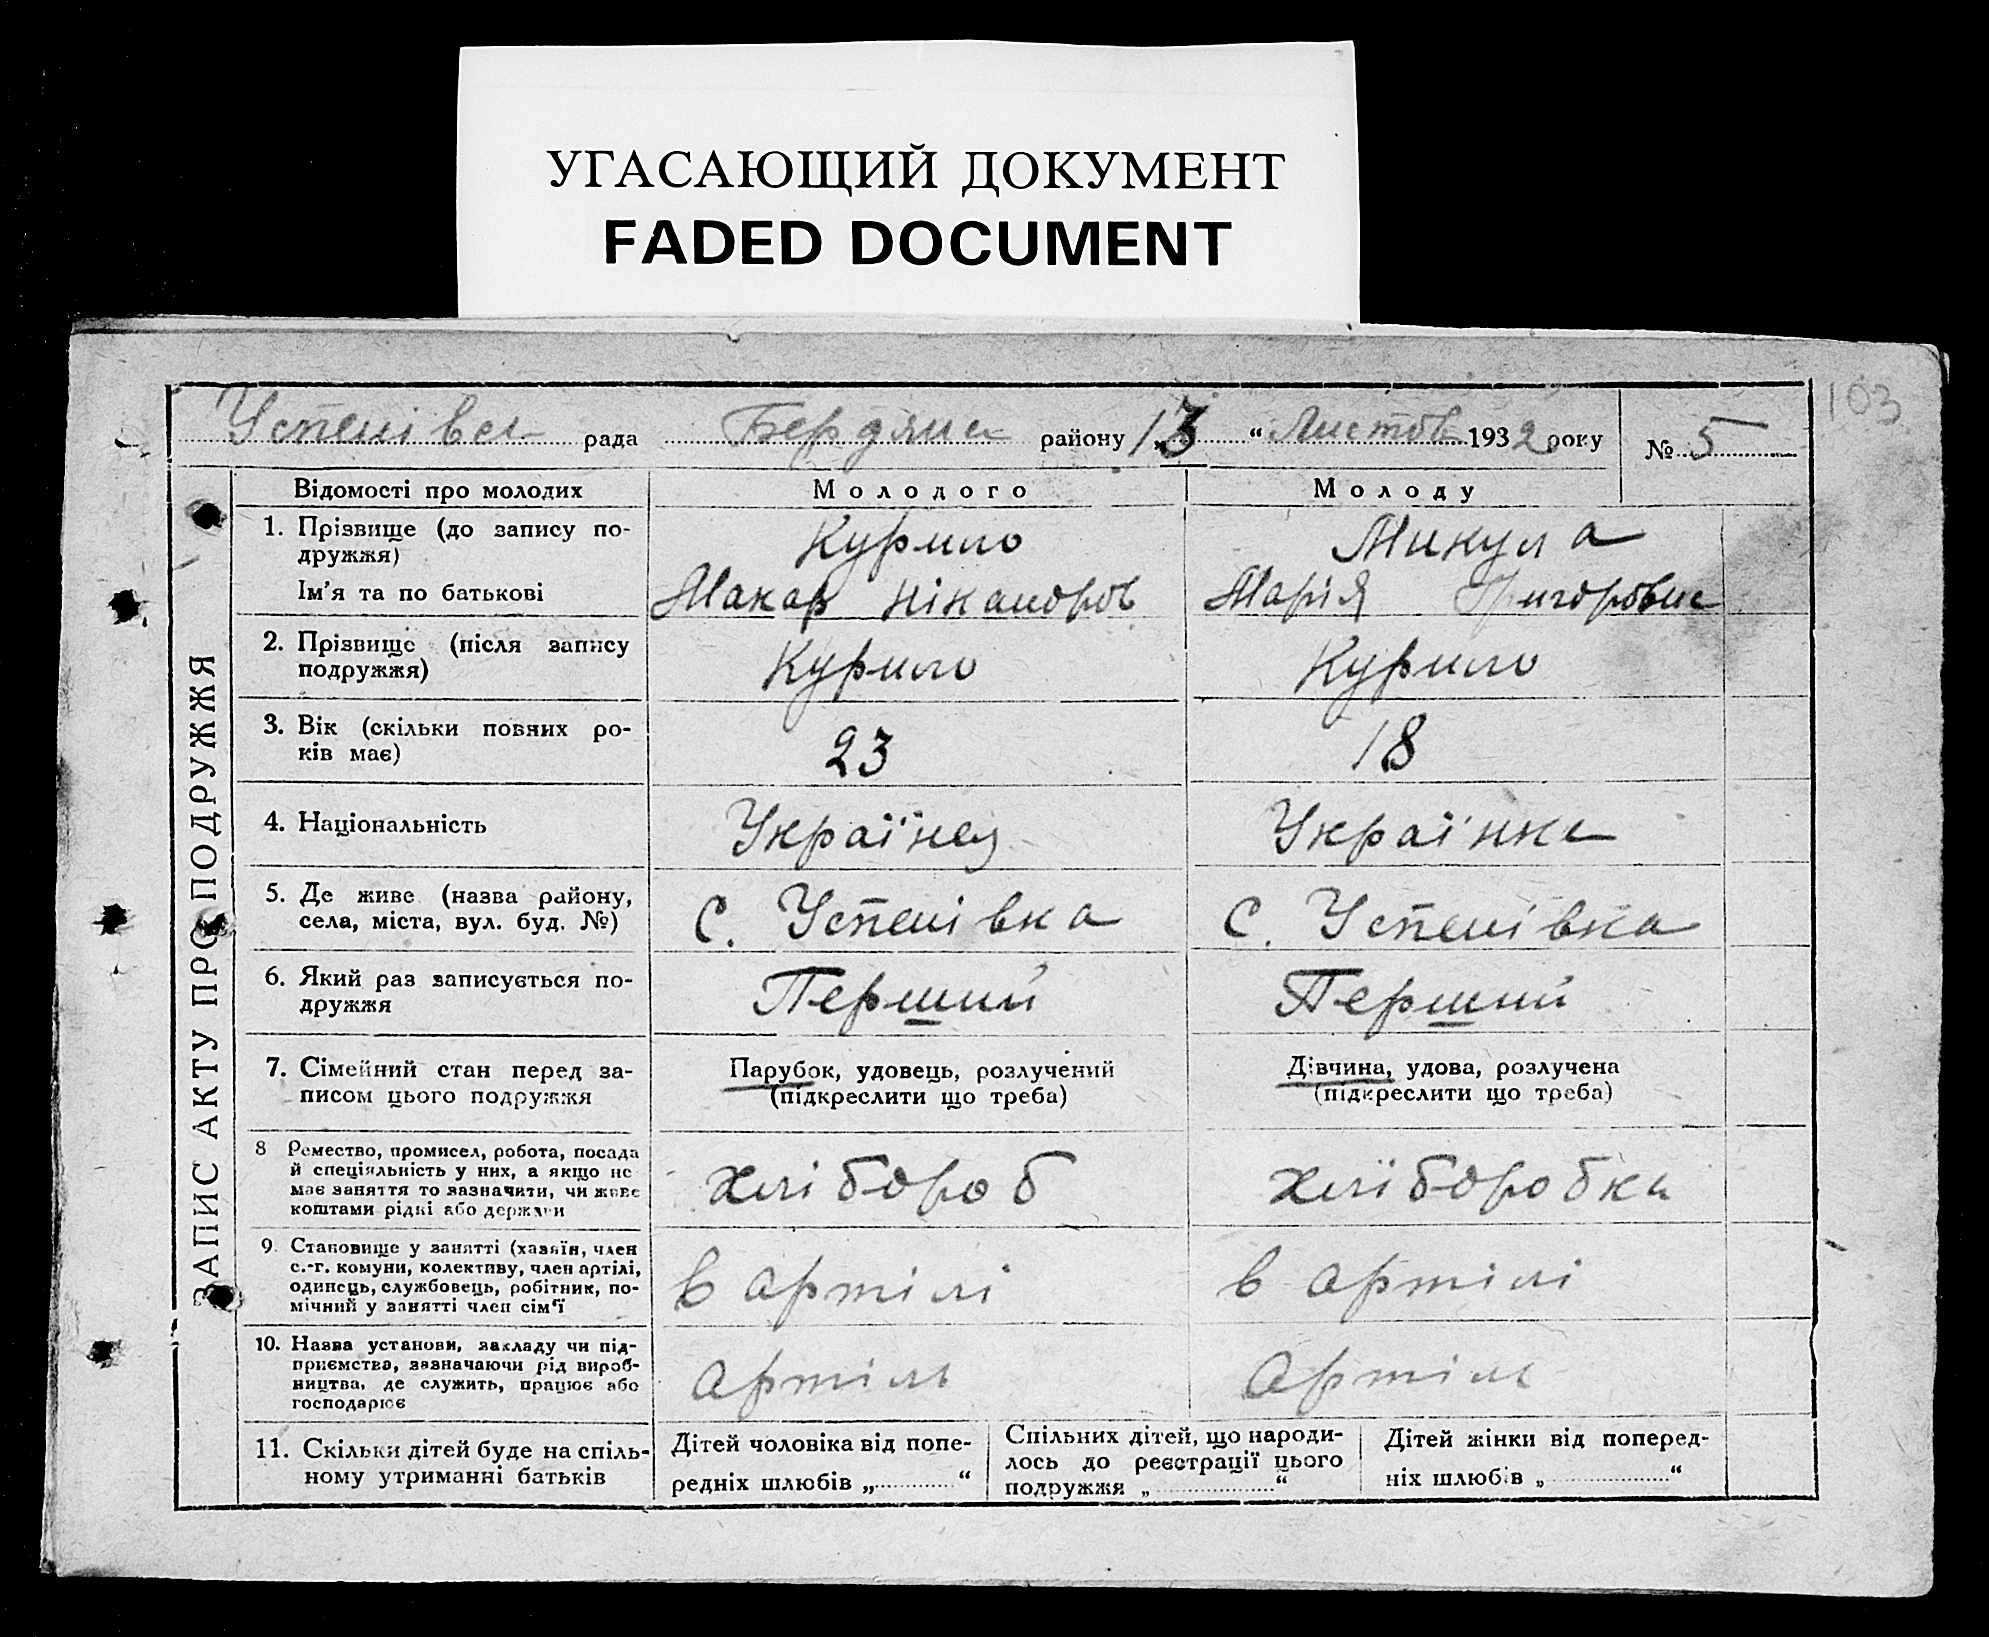 УГАСАЮЩИЙ ДОКУМЕНТ
FADED DOCUMENT
103
Успенівсь рада Бердянсь району 13 “ Листоп 1932 року № 5
ЗАПИС АКТУ ПРО ПОДРУЖЖЯ
Відомості про молодих Молодого Молоду
1. Прізвище (до запису по-
дружжя) Курило Микула
Ім'я та по батькові Макар Нікандров Марія Григоровна
2. Прізвище (після запису
подружжя) Курило Курило
3. Вік (скільки повних ро-
ків має) 23 18
4. Національність Українец Українка
5. Де живе (назва району,
села, міста, вул. буд. №) С. Успенівка С. Успенівка
6. Який раз записується по-
дружжя Перший Перший
7. Сімейний стан перед за-
писом цього подружжя
Парубок, удовець, розлучений
(підкреслити що треба)
Дівчина, удова, розлучена
(підкреслити що треба)
8 Ремество, промисел, робота, посада
й спеціяльність у них, а якщо не
має заняття то зазначити, чи живе
коштами рідні або держави
Хлібороб Хліборобка
9. Становище у занятті (хазяїн, член
с.-г. комуни, колективу, член артілі,
одинець, службовець, робітник, по-
мічний у занятті член сім'ї
в артілі в артілі
10. Назва установи, закладу чи під-
приємства, зазначаючи рід вироб-
ництва, де служить, працює або
господарює
Артіль Артіль
11. Скільки дітей буде на спіль-
ному утриманні батьків
Дітей чоловіка від попе-
редніх шлюбів „ “
Спільних дітей, що народи-
лось до реєстрації цього
подружжя „ “
Дітей жінки від поперед-
ніх шлюбів „ “